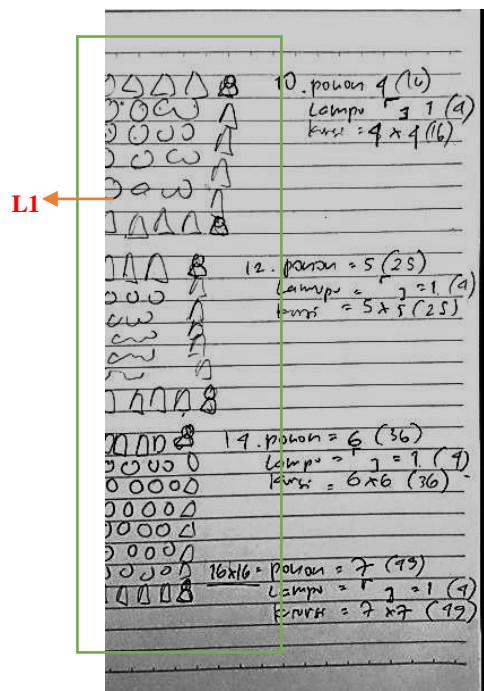 10. pohon 4 (16)
lampu ┌ ┐ 1 (4)
kursi = 4 x 4 (16)
L1
12. pohon = 5 (25)
Lampu = ┌ ┐ = 1 (4)
kursi = 5 x 5 (25)
14. pohon = 6 (36)
Lampu = ┌ ┐ = 1 (4)
kursi = 6x6 (36)
16x16 = pohon = 7 (49)
Lampu = ┌ ┐ = 1 (4)
kursi = 7 x7 (49)